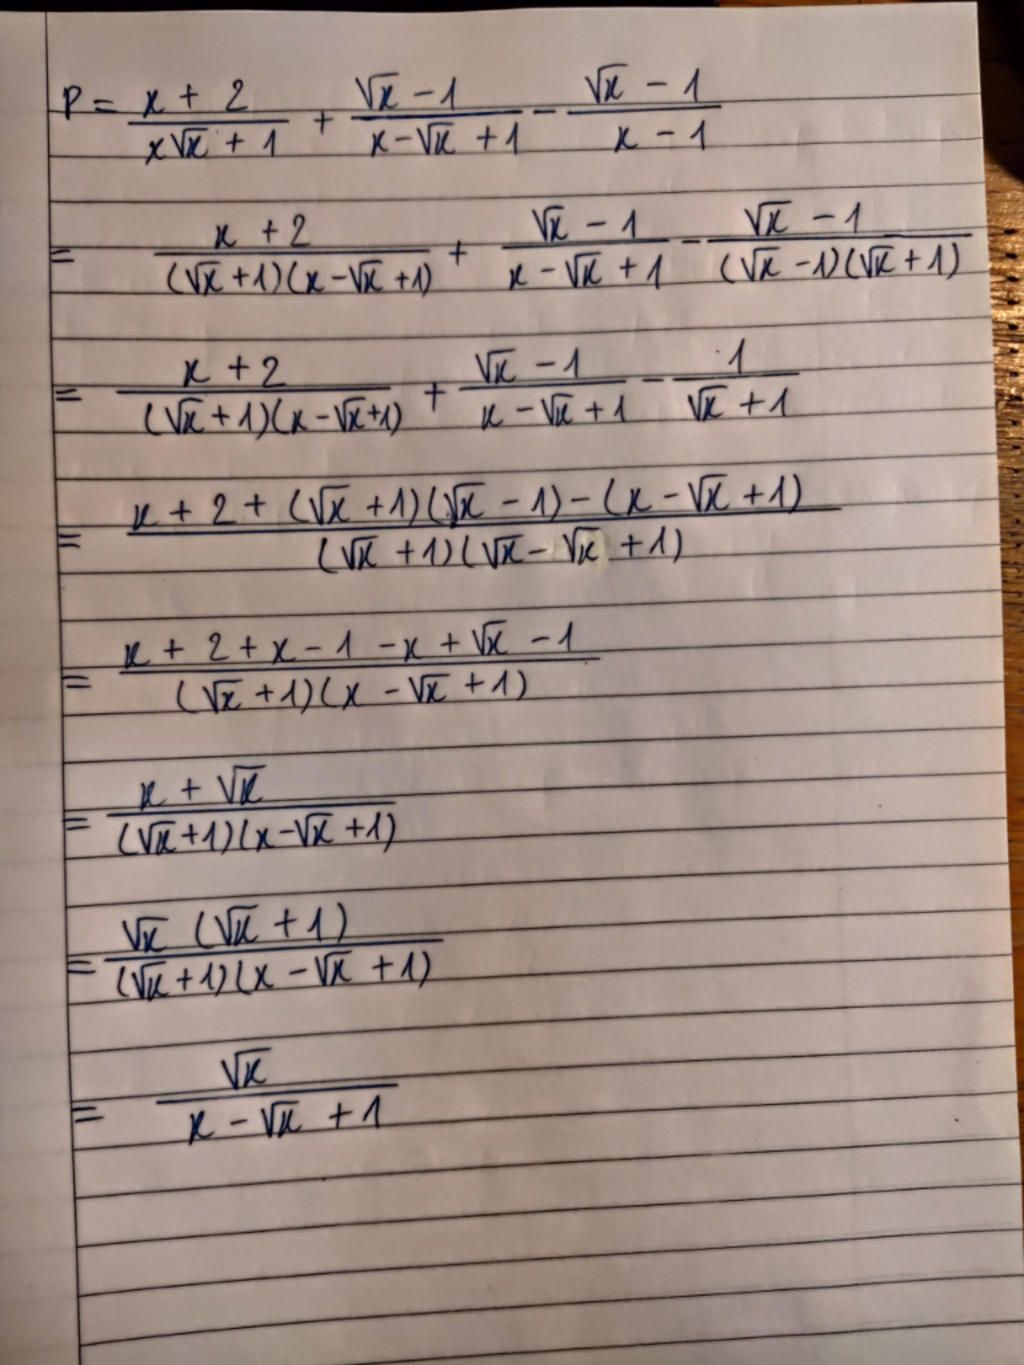 P = \frac{x + 2}{x\sqrt{x} + 1} + \frac{\sqrt{x} - 1}{x - \sqrt{x} + 1} - \frac{\sqrt{x} - 1}{x - 1}
= \frac{x + 2}{(\sqrt{x} + 1)(x - \sqrt{x} + 1)} + \frac{\sqrt{x} - 1}{x - \sqrt{x} + 1} - \frac{\sqrt{x} - 1}{(\sqrt{x} - 1)(\sqrt{x} + 1)}
= \frac{x + 2}{(\sqrt{x} + 1)(x - \sqrt{x} + 1)} + \frac{\sqrt{x} - 1}{x - \sqrt{x} + 1} - \frac{1}{\sqrt{x} + 1}
= \frac{x + 2 + (\sqrt{x} + 1)(\sqrt{x} - 1) - (x - \sqrt{x} + 1)}{(\sqrt{x} + 1)(\sqrt{x} - \sqrt{x} + 1)}
= \frac{x + 2 + x - 1 - x + \sqrt{x} - 1}{(\sqrt{x} + 1)(x - \sqrt{x} + 1)}
= \frac{x + \sqrt{x}}{(\sqrt{x} + 1)(x - \sqrt{x} + 1)}
= \frac{\sqrt{x} (\sqrt{x} + 1)}{(\sqrt{x} + 1)(x - \sqrt{x} + 1)}
= \frac{\sqrt{x}}{x - \sqrt{x} + 1}